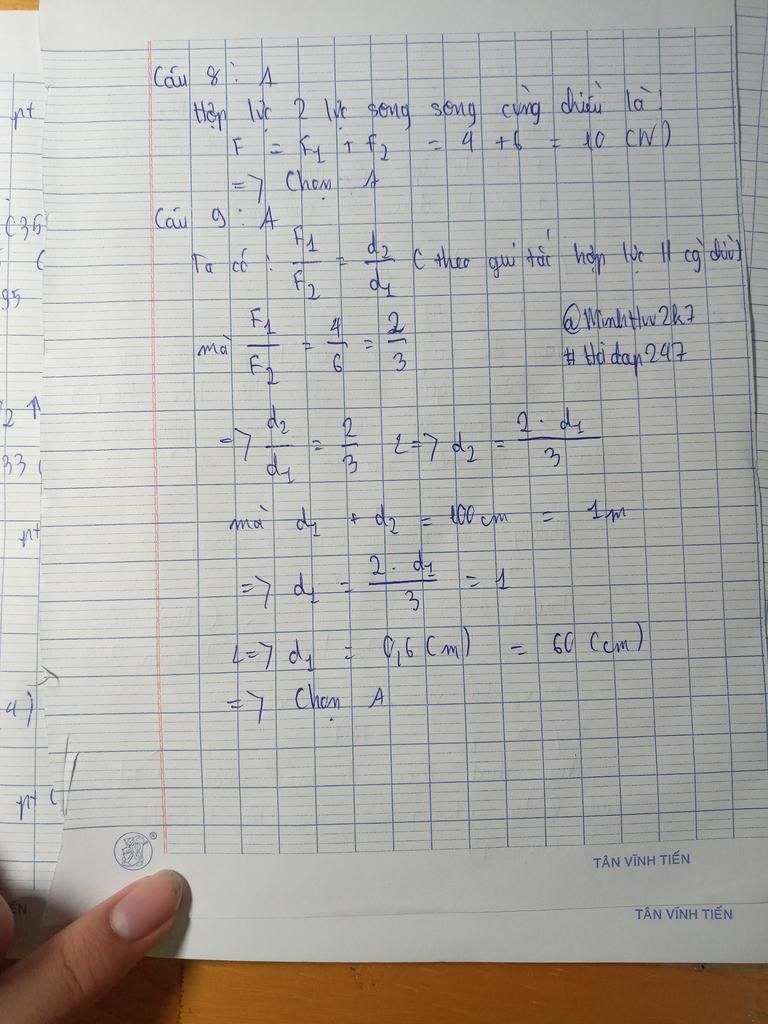 Câu 8 : A
Hợp lực 2 lực song song cùng chiều là :
F = F1 + F2 = 4 + 6 = 10 (N)
=> Chọn A
Câu 9 : A
Ta có : F1/F2 = d2/d1 ( theo qui tắc hợp lực // cg chiều)
mà F1/F2 = 4/6 = 2/3
@MinhHuv2k7
# Hoidap247
=> d2/d1 = 2/3 <=> d2 = 2 . d1/3
mà d1 + d2 = 100 cm = 1m
=> d1 = 2 . d1/3 = 1
<=> d1 = 0,6 (m) = 60 (cm)
=> Chọn A
TÂN VĨNH TIẾN
TÂN VĨNH TIẾN
pt
(36
(
95
2 ↑
33 (
pt
4)
pt (
ẾN